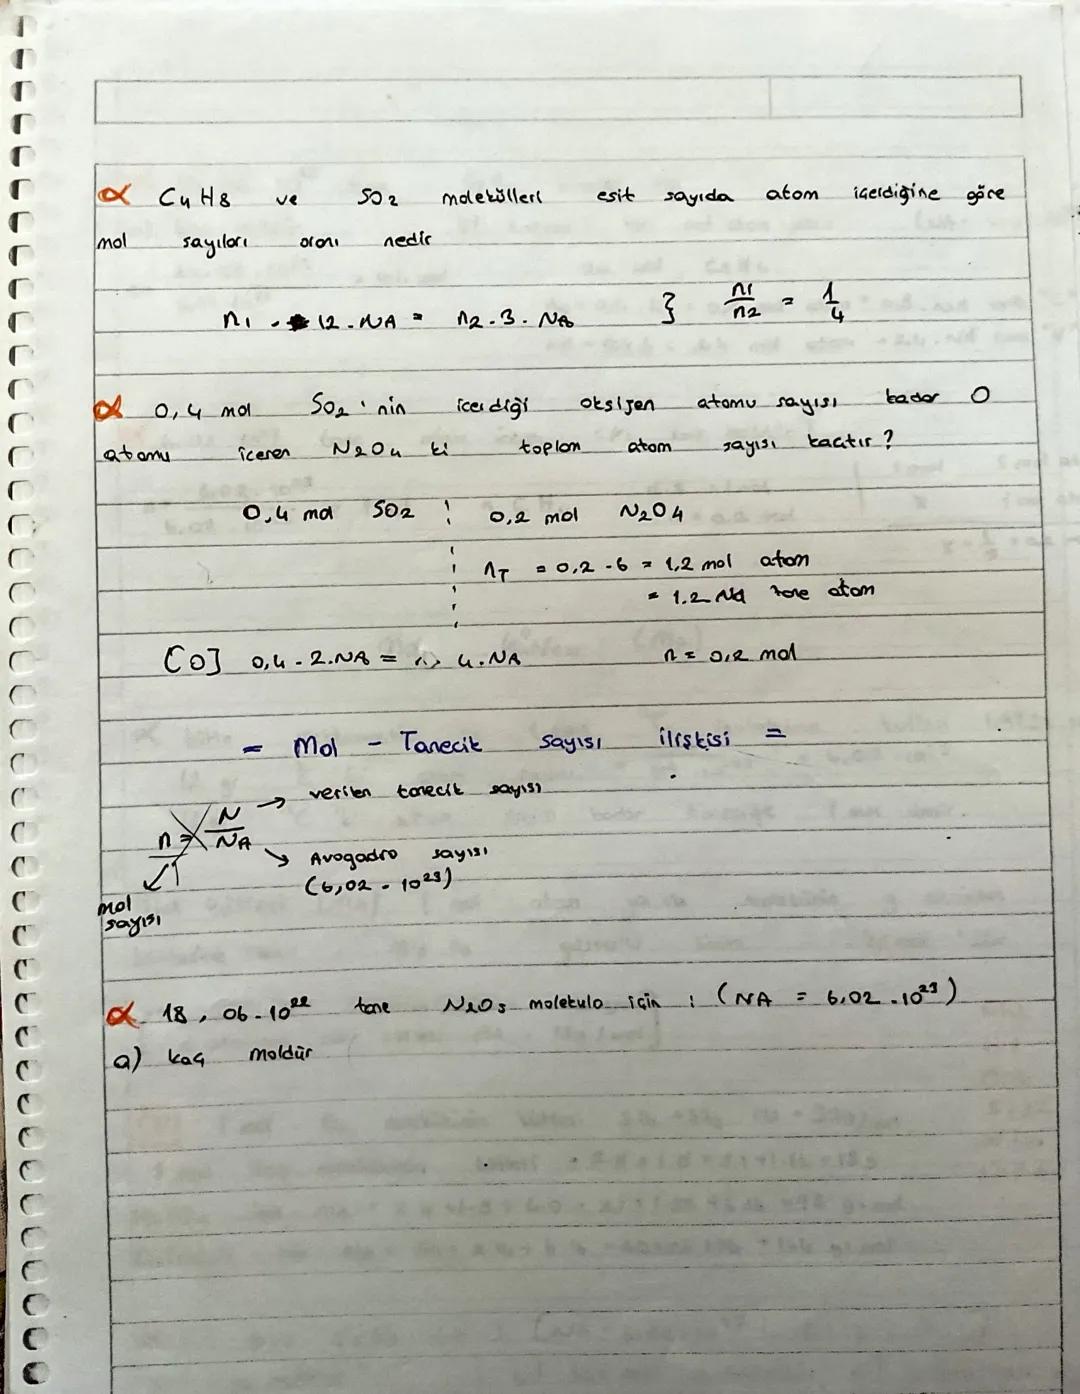 α C4H8 ve SO2 molekülleri eşit sayıda atom içerdiğine göre
mol sayıları oranı nedir
n1 . 12 . NA = n2 . 3 . NA } n1/n2 = 1/4
α 0,4 mol SO2 'nin içerdiği oksijen atomu sayısı kadar O
atomu içeren N2O4 ki toplam atom sayısı kaçtır ?
0,4 mol SO2 0,2 mol N2O4
nT = 0,2 . 6 = 1,2 mol atom
= 1.2 NA tane atom
[O] 0,4 . 2.NA = n . 4.NA n = 0,2 mol
= Mol - Tanecik sayısı ilişkisi =
n = N/NA
→ verilen tanecik sayısı
↘ Avogadro sayısı
(6,02 . 10²³)
mol
sayısı
α 18, 06 . 10²² tane N2O5 molekülü için : (NA = 6,02 . 10²³)
a) kaç moldür